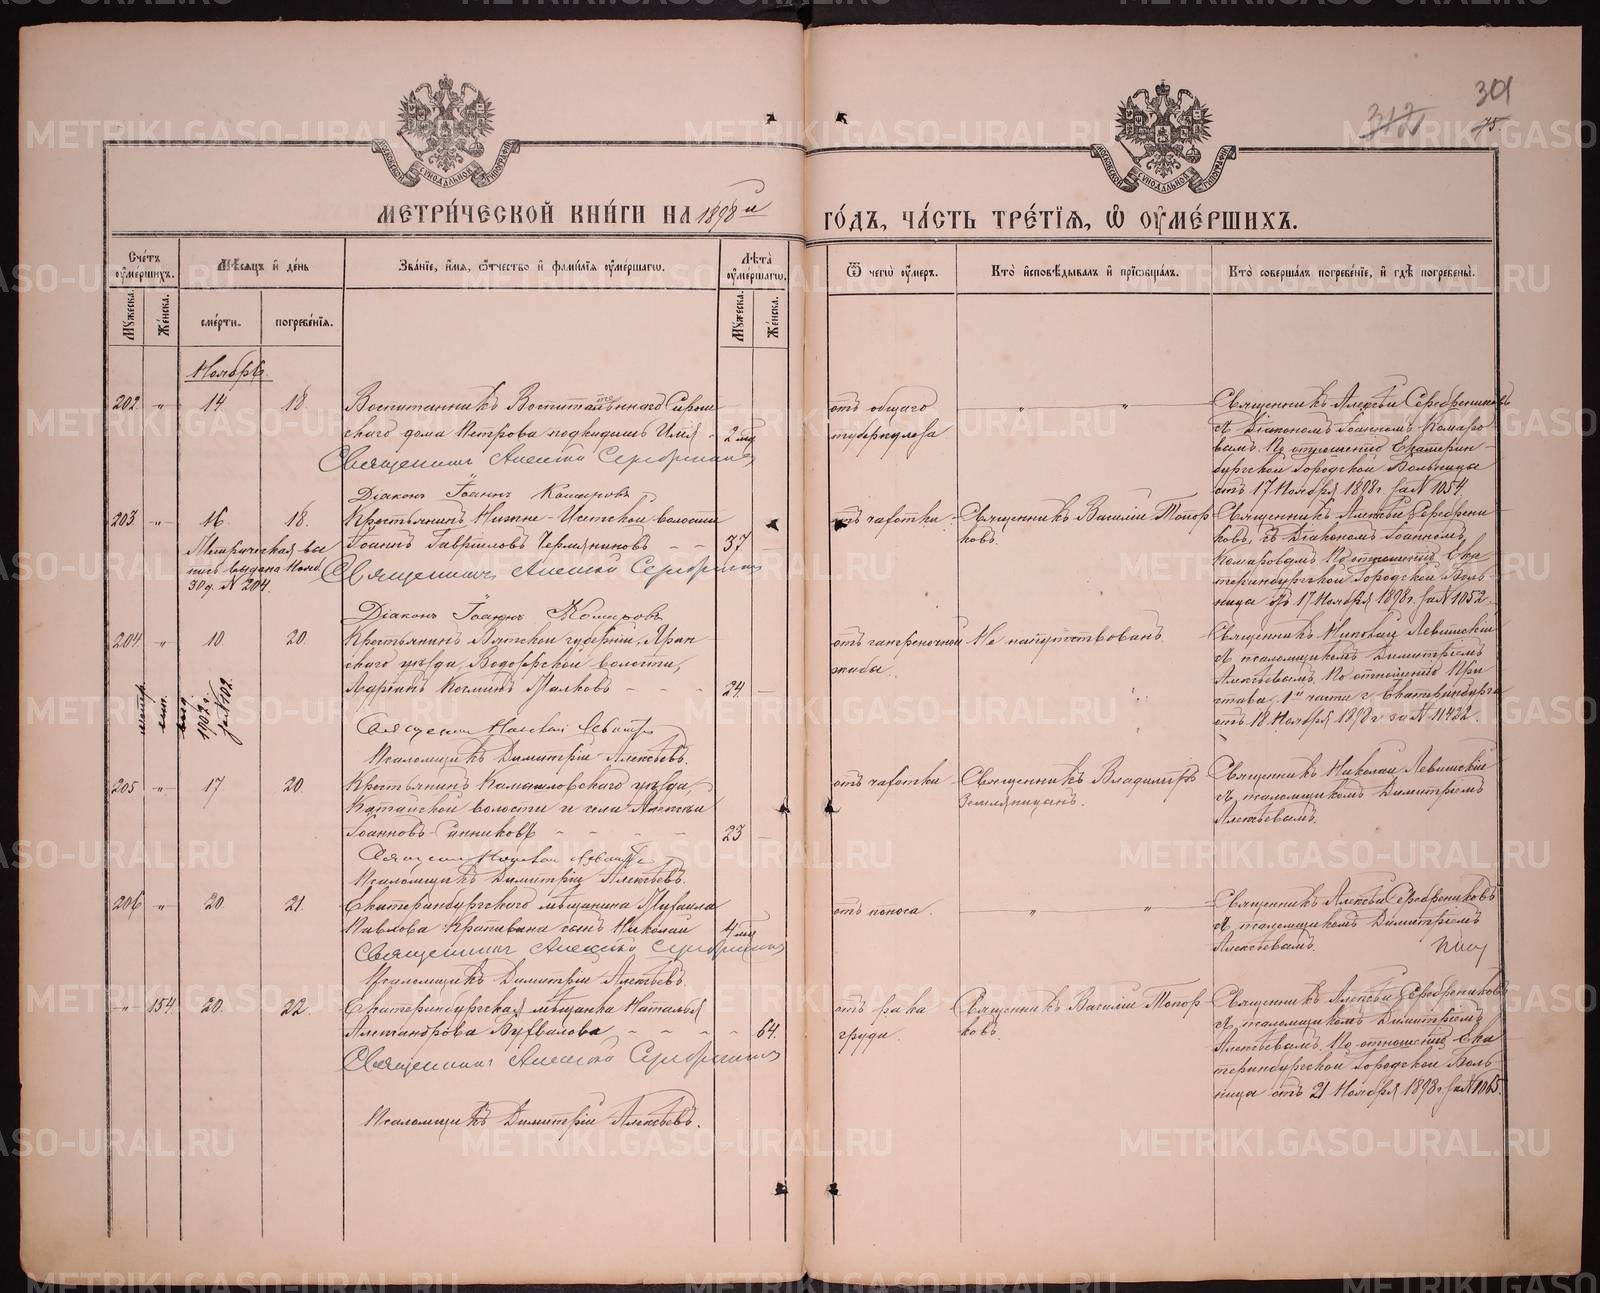 301
312
75
МЕТРИ́ЧЕСКОЙ КНИ́ГИ НА 1898 й
ГО́ДЪ, ЧА́СТЬ ТРЕ́ТІѦ, Ѡ ОУМЕ́РШИХЪ.
Сче́тъ оуме́ршихъ.
Мꙋ́жеска.
Же́нска.
Мѣ́сѧцъ и де́нь
сме́рти.
погребе́нїѧ.
Зва́нїе, и́мѧ, ѻ́тчество и фами́лїѧ оуме́ршагѡ.
Лѣ́та оуме́ршагѡ.
Мꙋ́жеска.
Же́нска.
Ѿ чегѡ̀ оу́меръ.
Кто̀ и҆сповѣ́дывалъ и҆ прїѻбща́лъ.
Кто̀ соверша́лъ погребе́нїе, и҆ гдѣ̀ погребены̀.
Ноябрь.
202 " 14 18
Воспитанникъ Воспитательнаго Сирот
скаго дома Петрова подкидышъ Илія - 2 мѣ
Священникъ Алексѣй Серебрениковъ
Діаконъ Іоаннъ Комаровъ
отъ общаго
туберкулеза
Священникъ Алексѣй Серебрениковъ
съ Діакономъ Іоанномъ Комаро-
вымъ. По отношенію Екатерин-
бургской Городской Больницы
отъ 17 Ноября 1898 г. за № 1054
203 " 16. 18.
Крестьянинъ Нижне-Исетской волости
Іоаннъ Гавриловъ Чермяниновъ - - 37
Метрическая вы
пись выдана
30 д. № 204.
Священникъ Алексѣй Серебрениковъ
Діаконъ Іоаннъ Комаровъ
отъ чахотки
Священникъ Василій Топор-
ковъ.
Священникъ Алексѣй Серебрени-
ковъ, съ Діакономъ Іоанномъ
Комаровымъ. По отношенію Ека
теринбургской Городской Боль-
ницы отъ 17 Ноября 1898 г. за № 1052
204 " 10. 20.
Крестьянинъ Вятской губерніи, Яран-
скаго уѣзда, волости,
Малковъ - - - 24. -
метр.
вып.
выд
1902 г.
за № 102
Священникъ Николай Левитскій
Псаломщикъ Димитрій Алексѣевъ.
отъ гангреночной
жабы.
Не напутствованъ.
Священникъ Николай Левитскій
съ псаломщикомъ Димитріемъ
Алексѣевымъ. По отношенію При
става 1й части г. Екатеринбурга
отъ 18 Ноября 1898 г. за № 11432.
205 " 17 20.
Крестьянинъ Камышловскаго уѣзда,
Катайской волости и села Алексѣй
Іоанновъ - - - - 23 -
Священникъ Николай Левитскій
Псаломщикъ Димитрій Алексѣевъ.
отъ чахотки
Священникъ Владиміръ
Земляницынъ.
Священникъ Николай Левитскій
съ псаломщикомъ Димитріемъ
Алексѣевымъ.
206 " 20. 21.
Екатеринбургскаго мѣщанина Михаила
Павлова Крапивина сынъ Николай 4 мѣ
Священникъ Алексѣй Серебрениковъ
Псаломщикъ Димитрій Алексѣевъ.
отъ поноса.
Священникъ Алексѣй Серебрениковъ
съ псаломщикомъ Димитріемъ
Алексѣевымъ.
" 154 20. 22.
Екатеринбургская мѣщанка Наталья
Александрова - - - - 64.
Священникъ Алексѣй Серебрениковъ
Псаломщикъ Димитрій Алексѣевъ.
отъ рака
груди.
Священникъ Василій Топор
ковъ.
Священникъ Алексѣй Серебрениковъ
съ псаломщикомъ Димитріемъ
Алексѣевымъ. По отношенію Ека
теринбургской Городской Боль-
ницы отъ 21 Ноября 1898 г. за № 1065.
METRIKI.GASO-URAL.RU